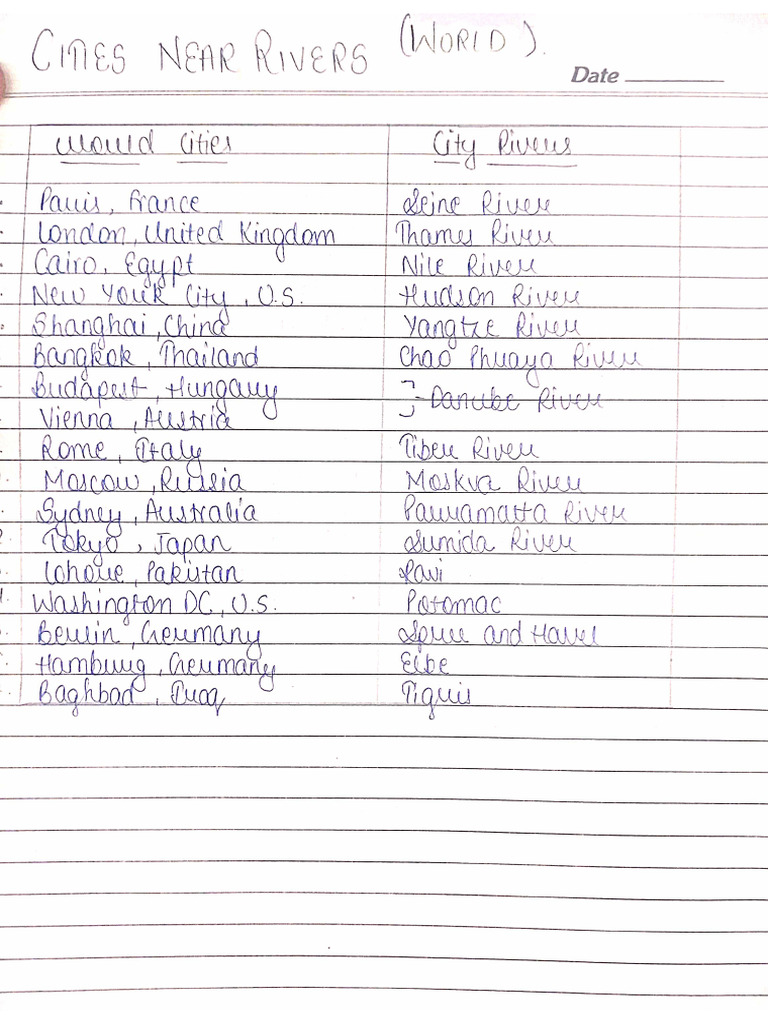 CITIES NEAR RIVERS (WORLD).
Date
World Cities City Rivers
Paris, France Seine River
London, United Kingdom Thames River
Cairo, Egypt Nile River
New York City, U.S. Hudson River
Shanghai, China Yangtze River
Bangkok, Thailand Chao Phraya River
Budapest, Hungary
Danube River
Vienna, Austria
Rome, Italy Tiber River
Moscow, Russia Moskva River
Sydney, Australia Parramatta River
Tokyo, Japan Sumida River
Lahore, Pakistan Ravi
Washington DC, U.S. Potomac
Berlin, Germany Spree and Havel
Hamburg, Germany Elbe
Baghbad, Iraq Tigris